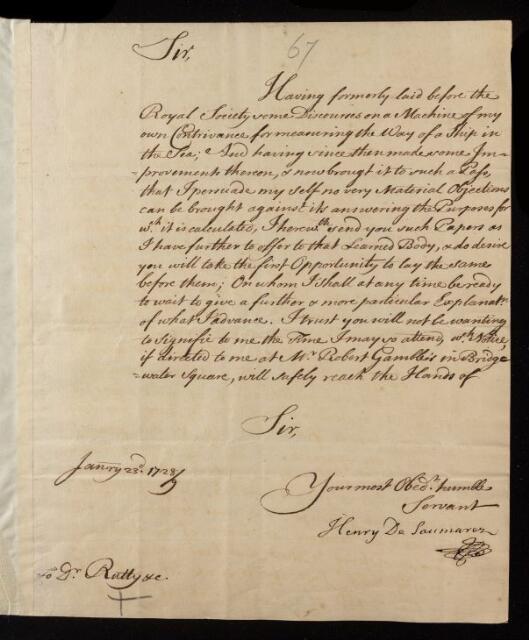 67
Sir,
Having formerly laid before the
Royal Society some Discourses on a Machine of my
own Contrivance for measuring the Way of a Ship in
the Sea; And having since then made some Im-
=provements thereon, & now brought it to such a Pass,
that I persuade my self no very Material Objections
can be brought against its answering the Purposes for
wch. it is calculated, I herewth. send you such Papers as
I have further to offer to that Learned Body, & do desire
you will take the first Opportunity to lay the same
before them; On whom I shall at any time be ready
to wait to give a further & more particular Explanatn.
of what I advance. I trust you will not be wanting
to Signifie to me the Time I may so attend, wch. Notice,
if directed to me at Mr. Robert Gamble's in Bridge
=water Square, will safely reach the Hands of
Sir,
Janry 23d. 1728/9
Your most Obedt. humble
Servant
Henry De Saumarez
To Dr. Rutty &c.